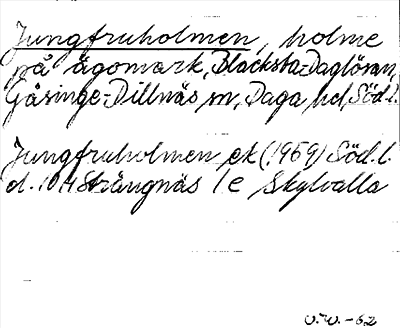 Jungfruholmen, holme
på ägomark, Blacksta-Daglöran,
Gåsinge-Dillnäs sn, Daga hd, Söd.l.
Jungfruholmen ek (1959) Söd.l.
d. 10H Strängnäs 1e Skylvalla
V.W. -62